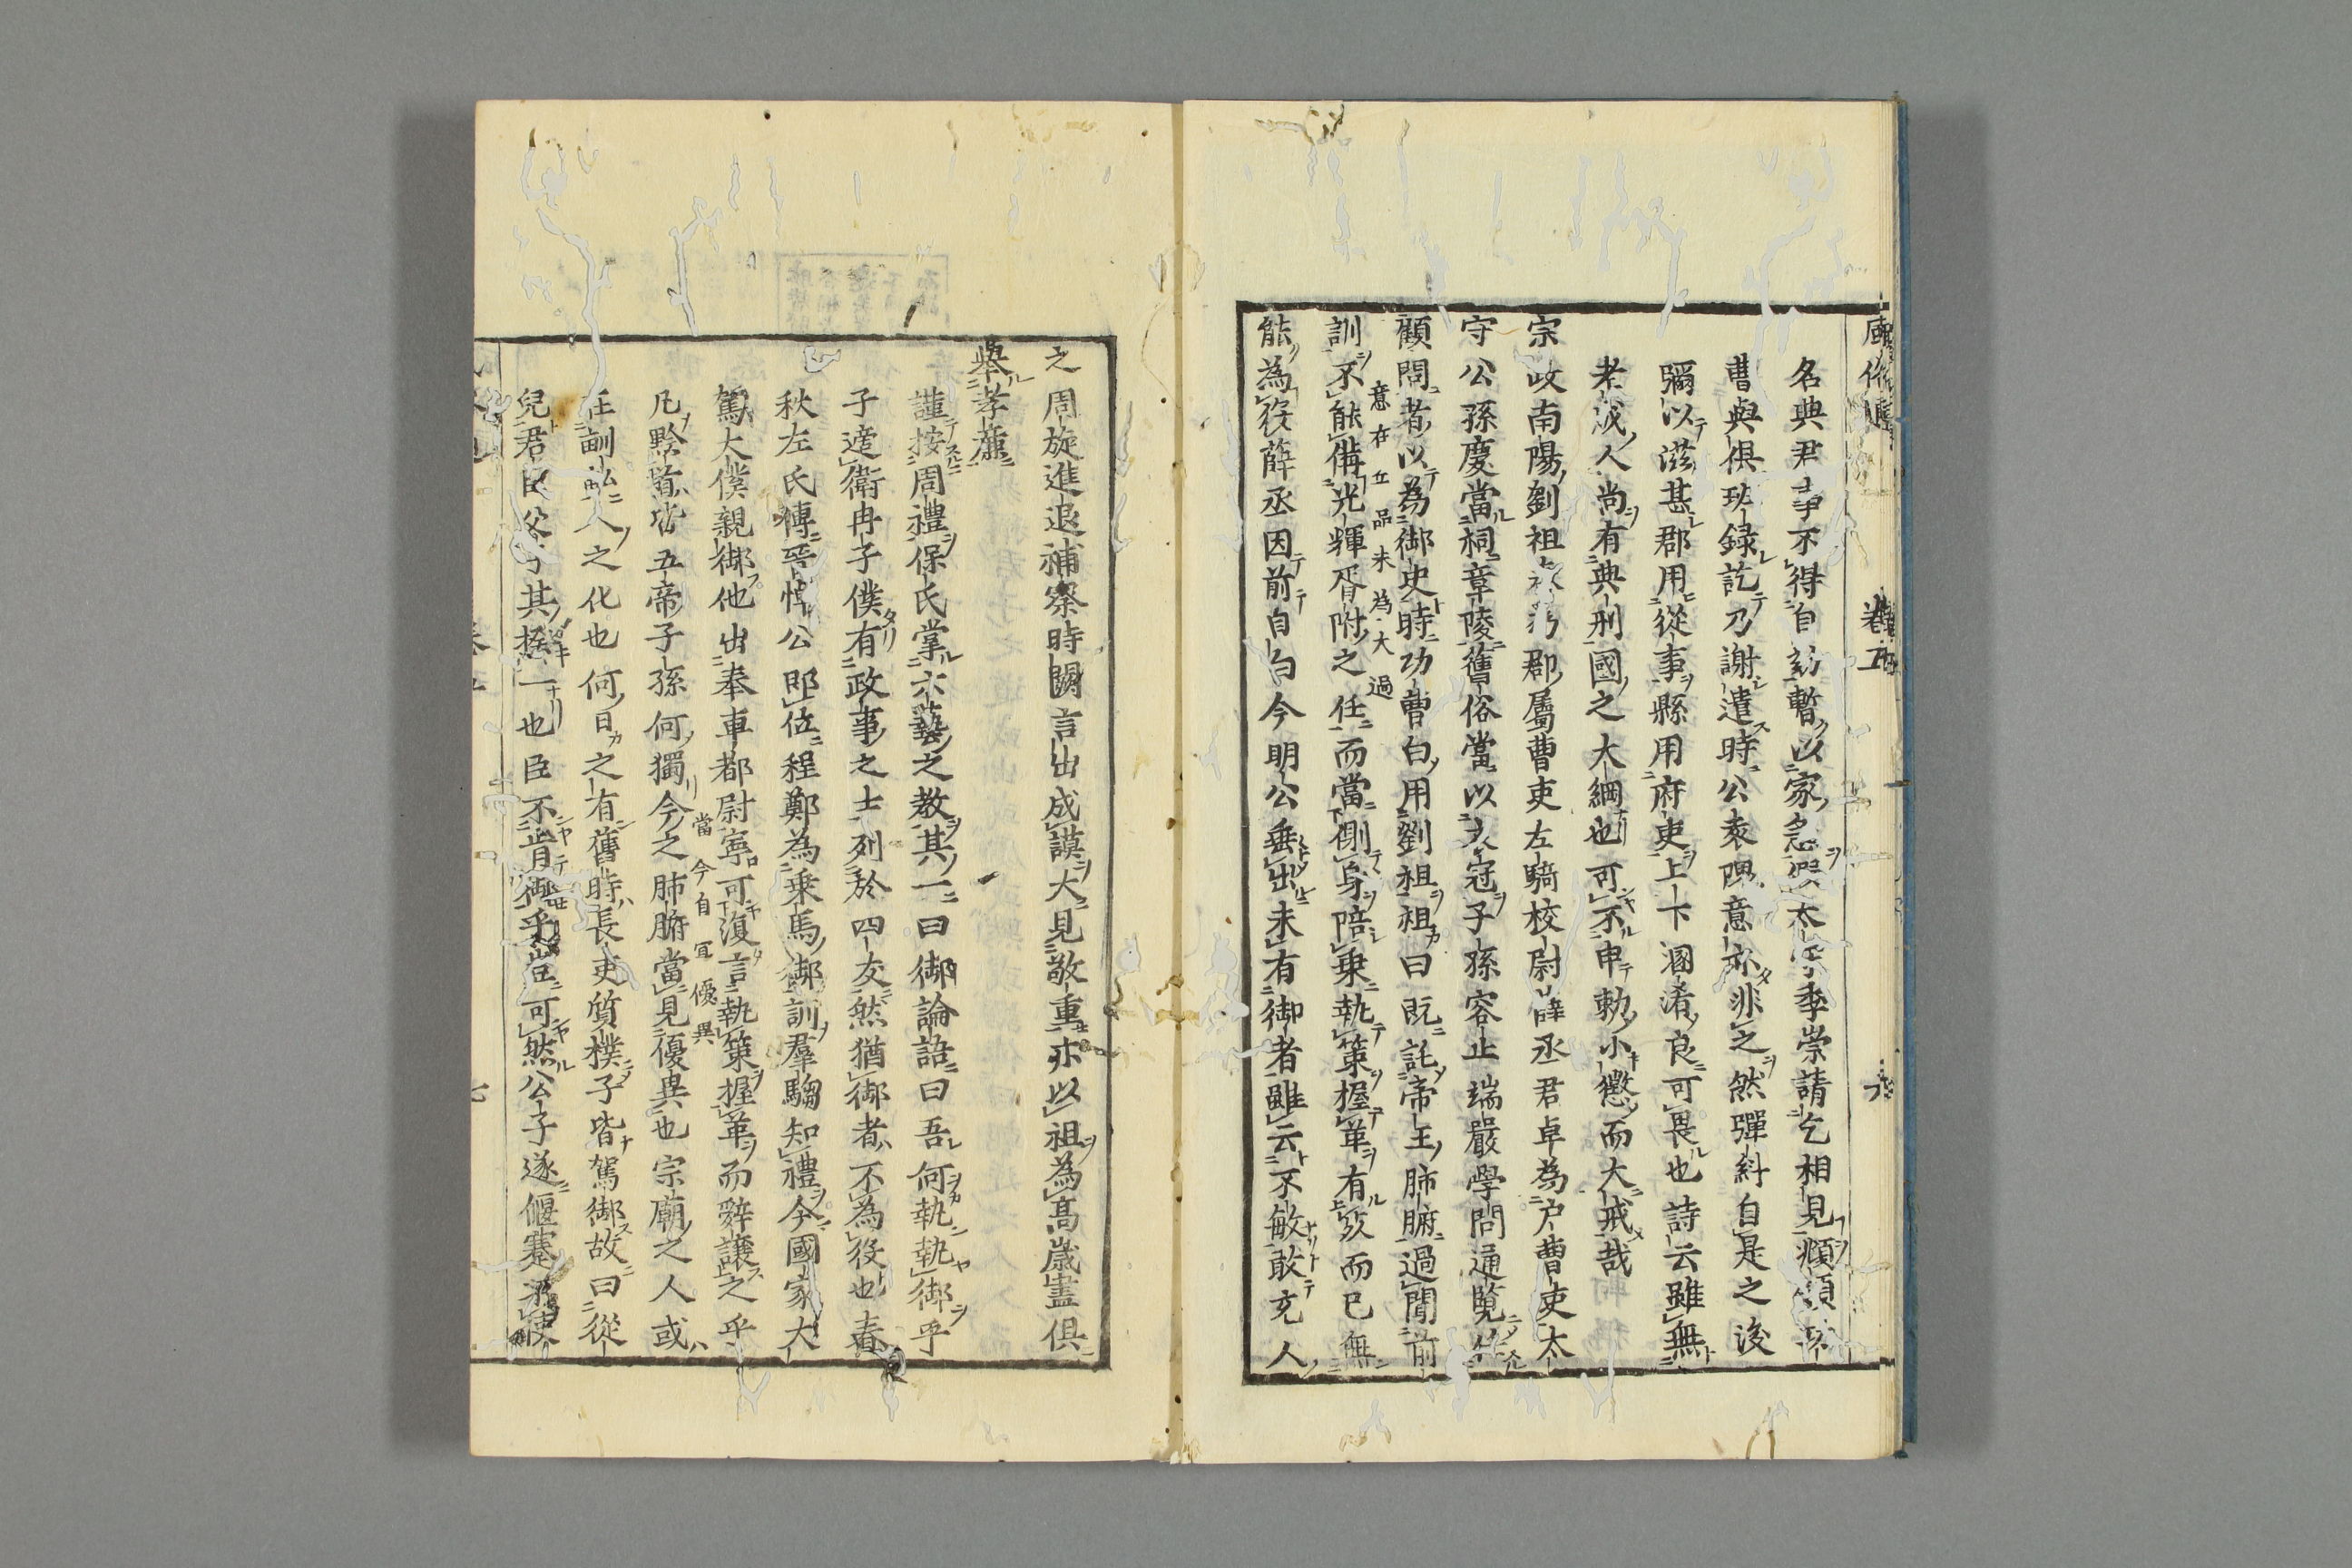 風俗通 卷五 六
名典君事不得自訪暫以家急假太守李崇請乞相見頫頭
曹與俱珙録訖乃謝遣時公袁隗意亦非之然彈糾自是之後
彌以滋甚郡用從事縣用府吏上下溷淆良可畏也詩云雖無
老成人尚有典刑國之大綱也可不申勅小懲而大戒哉
宗政南陽劉祖 郡屬曹吏左騎校尉薛丞君卓為戶曹吏太
守公孫慶當祠章陵舊俗當以衣冠子孫容止端嚴學問通覧
顧問者以為御史時功曹白用劉祖祖曰既託帝王肺腑過聞前
訓不能備光輝胥附之任而當側身陪乗執策握革有 而已無
意在丘品未為大過
能為役薛丞因前自白今明公垂出未有御者雖云不敏敢充人
之周旋進退補察時闕言出成謨大見敬重亦以祖為高歳盡俱
舉孝廉
謹按周禮保氏掌六藝之教其一曰御論語曰吾何執執御乎
子適衛冉子僕有政事之士列於四友然猶御者不為役也春
秋左氏傳晉悼公即位程鄭為乗馬御訓羣騶知禮今國家大
駕大僕親御他出奉車都尉寧可復言執策握革而辭讓之乎
凡黔首皆五帝子孫何獨今之肺腑當見優異也宗廟之人或
當今自冝優異
在 人之化也何日之有舊時長吏質樸子皆駕御故曰從
兒君臣父子其揆一也臣不肯御 可然公子遂偃蹇 使